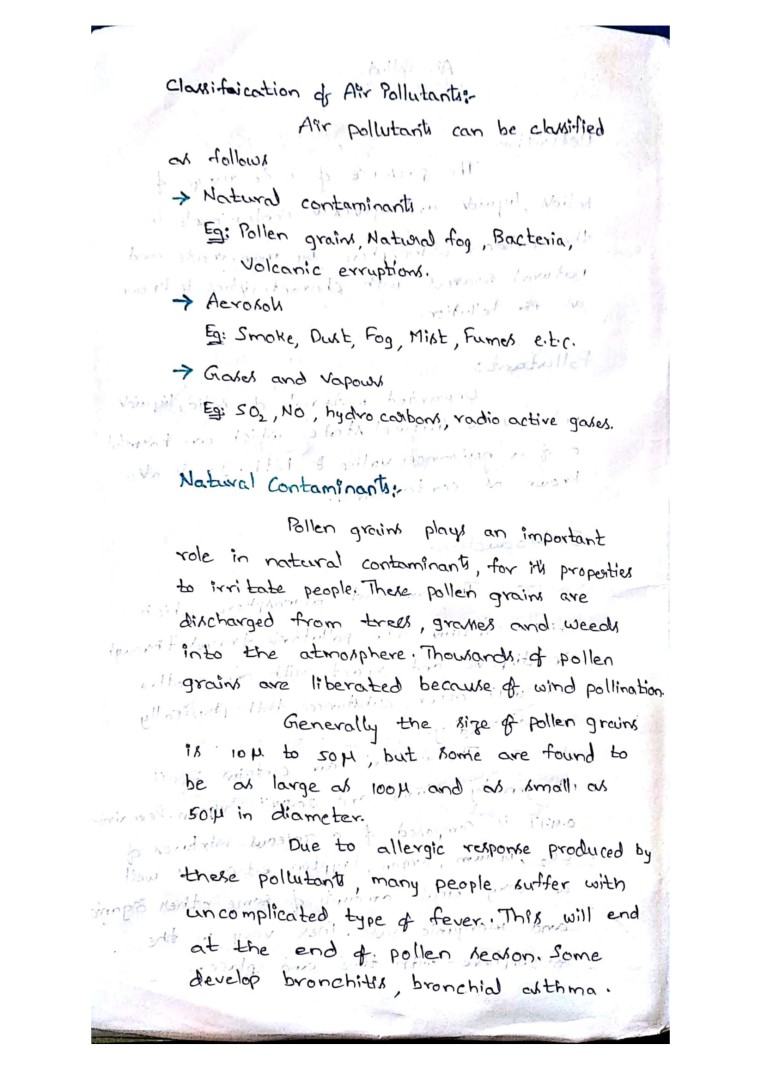 Classifaication of Air Pollutants:-
Air pollutants can be classified
as follows
→ Natural contaminants
Eg: Pollen grains, Natural fog, Bacteria,
Volcanic erruptions.
→ Aerosols
Eg: Smoke, Dust, Fog, Mist, Fumes e.t.c.
→ Gases and Vapours
Eg: SO₂, NO, hydro carbons, radio active gases.
Natural Contaminants:-
Pollen grains plays an important
role in natural contaminants, for its properties
to irritate people. These pollen grains are
discharged from trees, grasses and weeds
into the atmosphere. Thousands of pollen
grains are liberated because of wind pollination.
Generally the size of pollen grains
is 10µ to 50µ, but some are found to
be as large as 100µ and as small as
50µ in diameter.
Due to allergic response produced by
these pollutants, many people suffer with
uncomplicated type of fever. This will end
at the end of pollen season. Some
develop bronchitis, bronchial asthma.